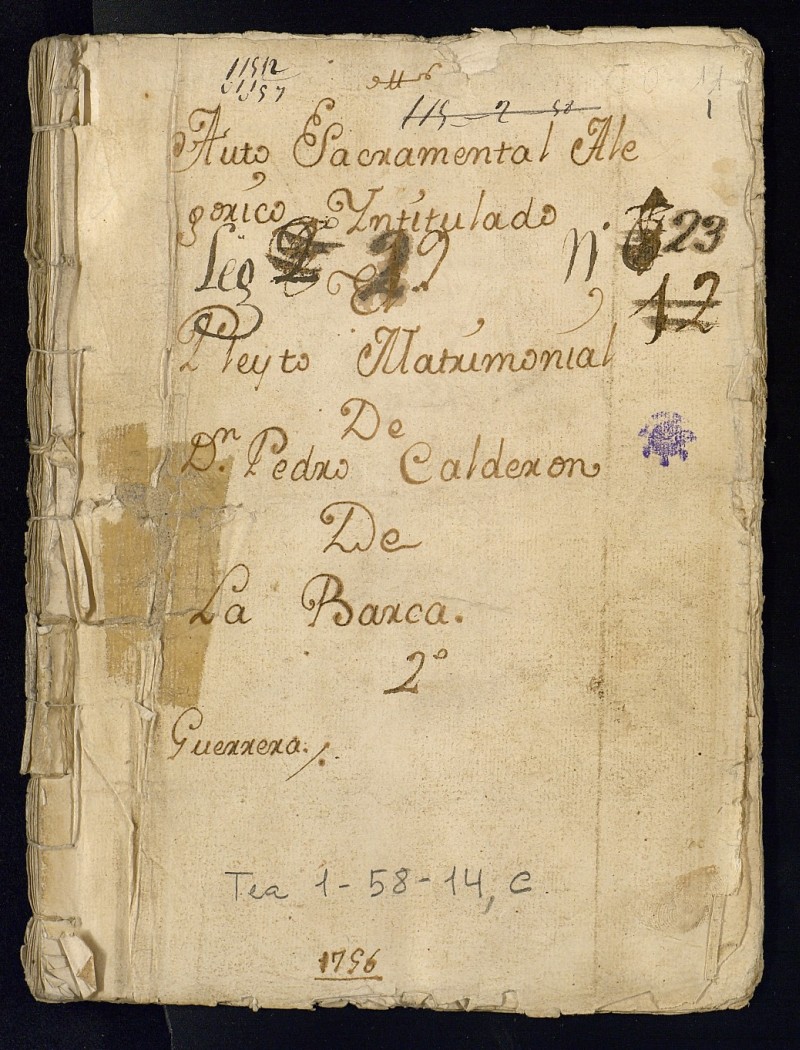 11512
115-2-58
1
Auto Sacramental Ale
gorico Yntitulado
Leg 2 2º N. 23
El
12
Pleyto Matrimonial
De
Dn. Pedro Calderon
De
La Barca.
2º
Guerrera.
Tea 1-58-14, C
1756